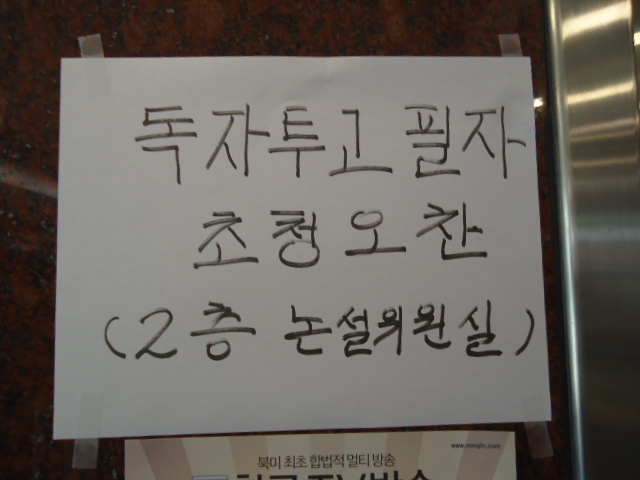 독자투고 필자
초청오찬
(2층 논설위원실)
북미 최초 합법적 멀티 방송